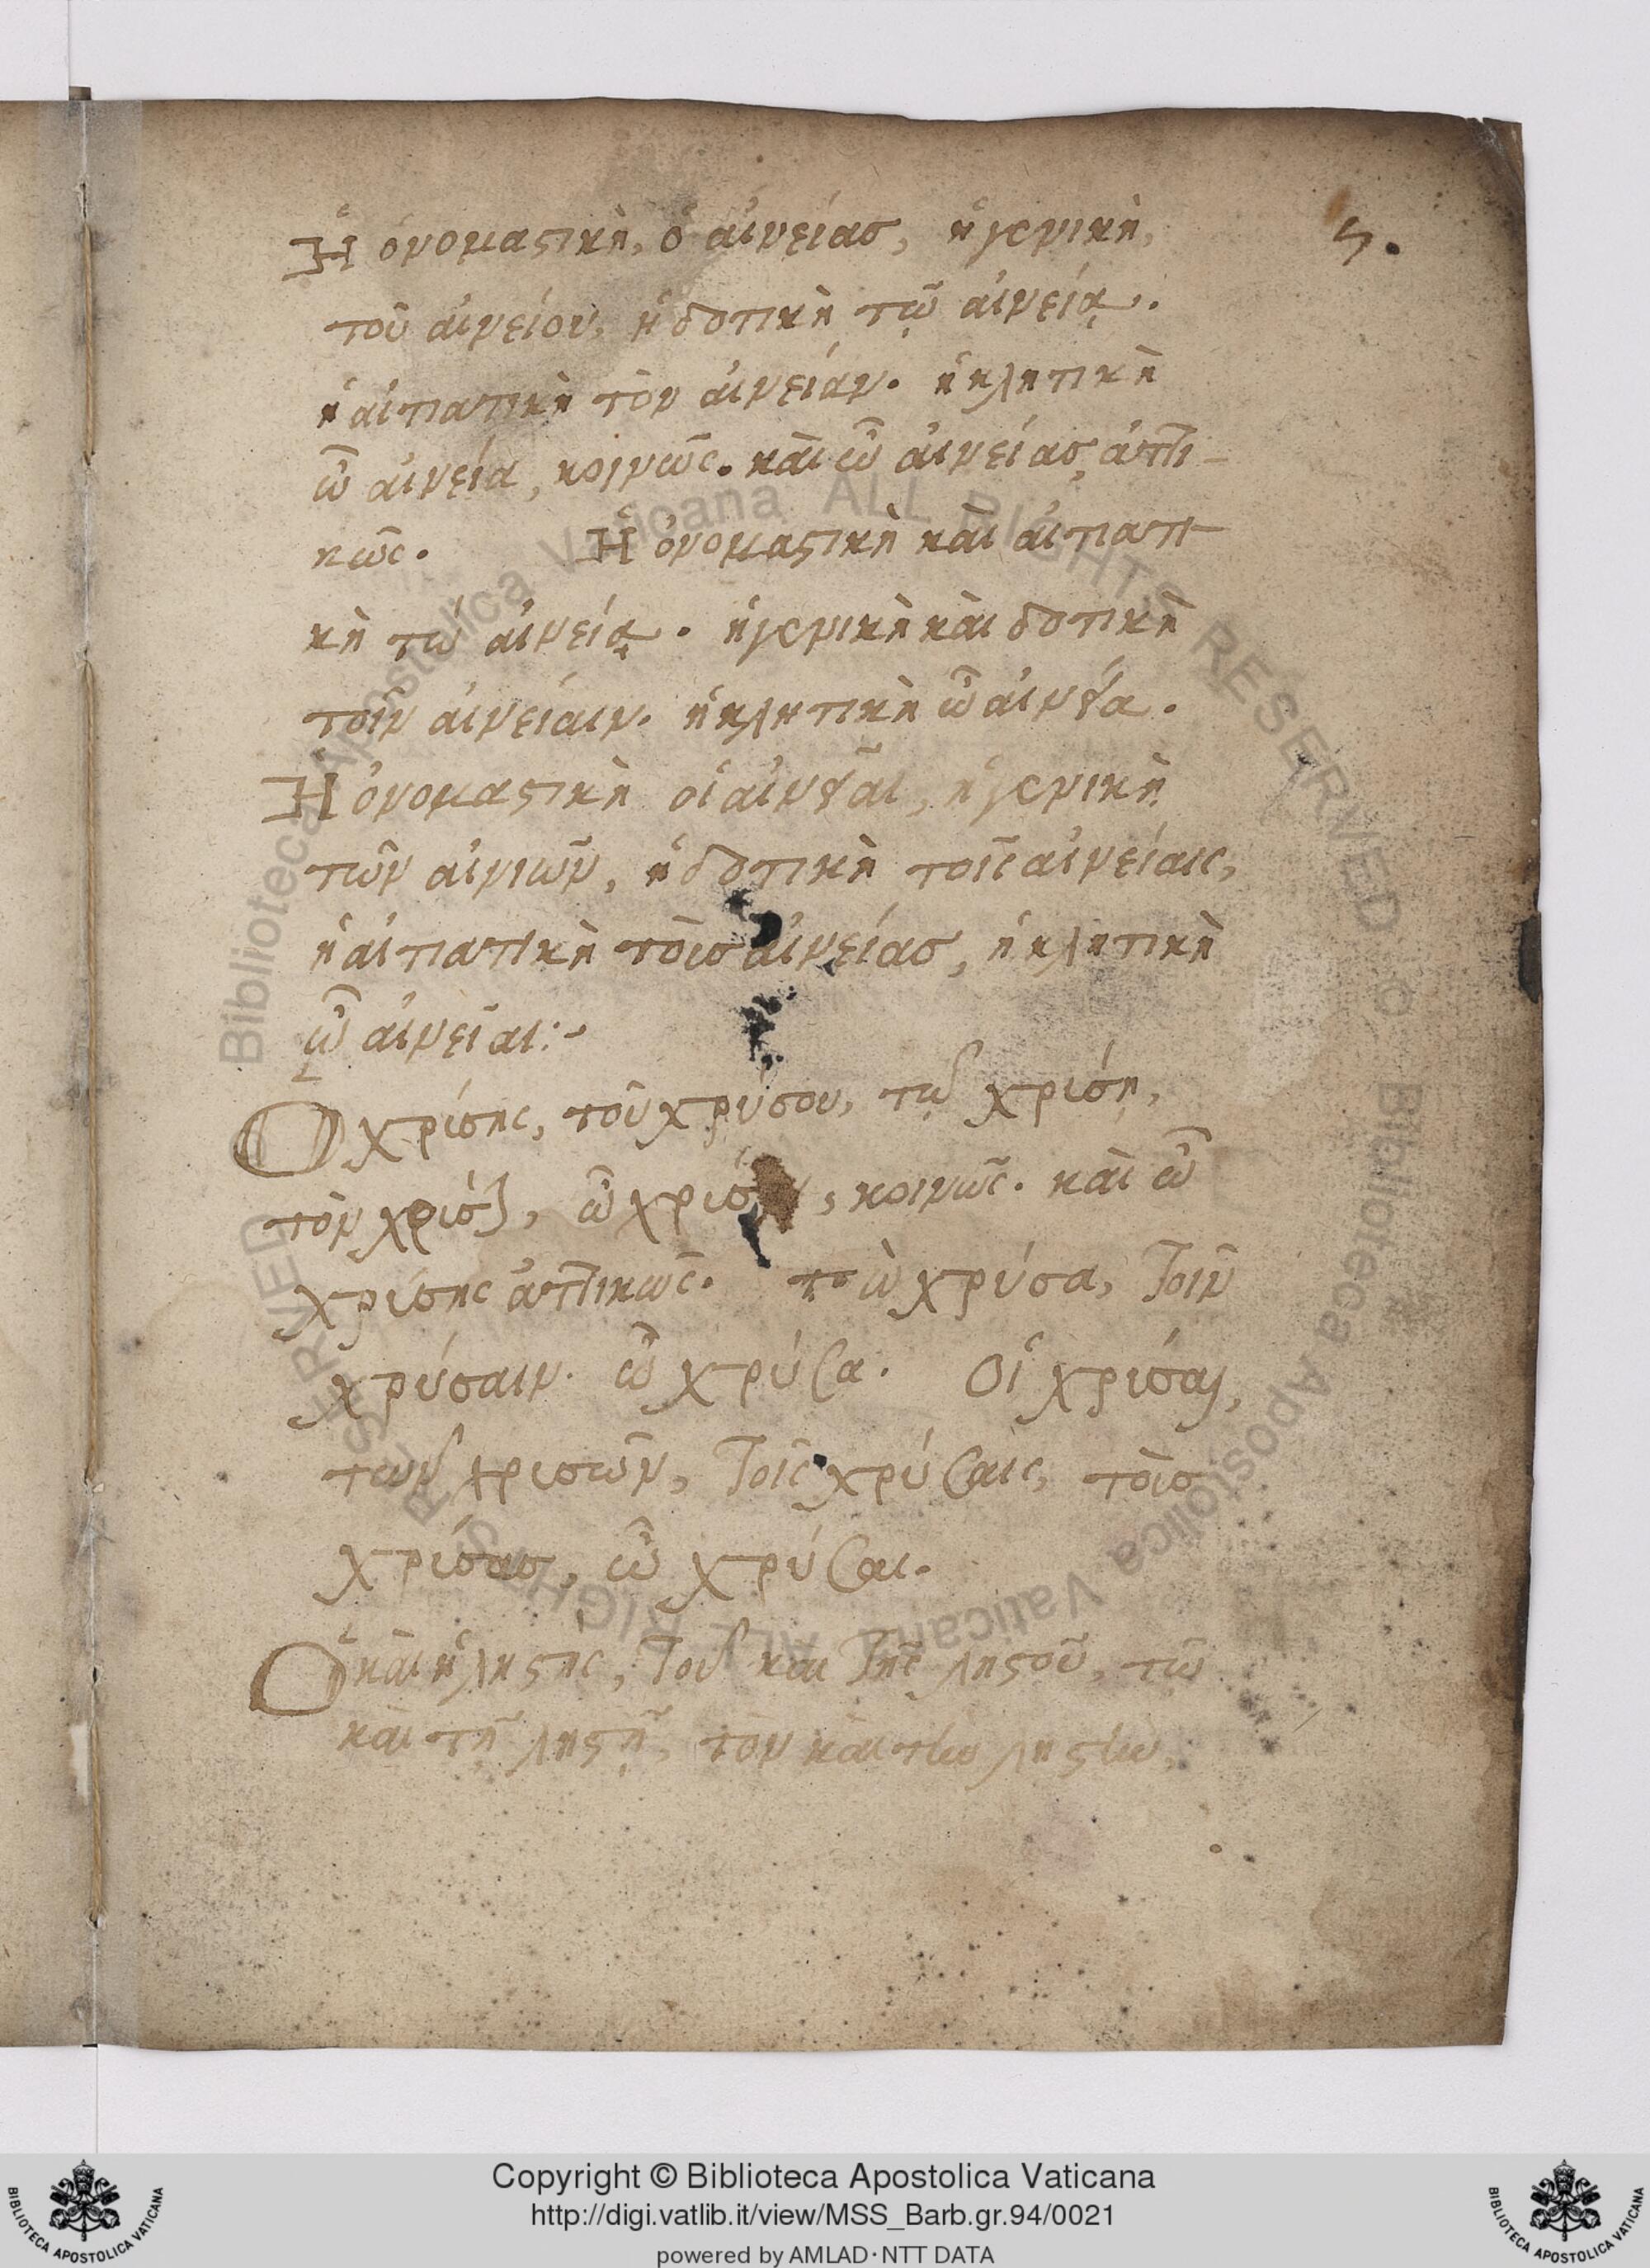 Ἡ ὀνομαστικὴ, ὁ αἰνείας, ἡ γενικὴ,
5.
τοῦ αἰνείου, ἡ δοτικὴ τῷ αἰνείᾳ.
ἡ αἰτιατικὴ τὸν αἰνείαν. ἡ κλητικὴ
ὦ αἰνεία, κοινῶς. καὶ ὦ αἰνείας, ἀττι-
κῶς. Ἡ ὀνομαστικὴ καὶ αἰτιατι-
κὴ τὼ αἰνείᾳ. ἡ γενικὴ καὶ δοτικὴ
τοῖν αἰνείαιν. ἡ κλητικὴ ὦ αἰνεία.
Ἡ ὀνομαστικὴ οἱ αἰνεῖαι, ἡ γενικὴ
τῶν αἰνιῶν, ἡ δοτικὴ τοῖς αἰνείαις,
ἡ αἰτιατικὴ τοὺς αἰνείας, ἡ κλητικὴ
ὦ αἰνεῖαι:-
Ὁ χρίσης, τοῦ χρύσου, τῷ χρισῃ,
τὸν χρίσην, ὦ, κοινῶς. καὶ ὦ
χρίσης ἀττικῶς. τὼ χρύσα, τοῖν
χρύσαιν. ὦ χρύσα. Οἱ χρίσαι,
τῶν χρισῶν, τοῖς χρύσαις, τοὺς
χρίσας, ὦ χρύσαι.
Ὁ καὶ ἡ λῃστης, τοῦ καὶ τῆς λῃστοῦ, τῷ
καὶ τῇ λῃστῇ, τὸν καὶ τὴν λῃστὴν,
Copyright © Biblioteca Apostolica Vaticana
http://digi.vatlib.it/view/MSS_Barb.gr.94/0021
powered by AMLAD·NTT DATA
BIBLIOTECA APOSTOLICA VATICANA
BIBLIOTECA APOSTOLICA VATICANA
Biblioteca Apostolica Vaticana ALL RIGHTS RESERVED © Biblioteca Apostolica Vaticana ALL RIGHTS RESERVED